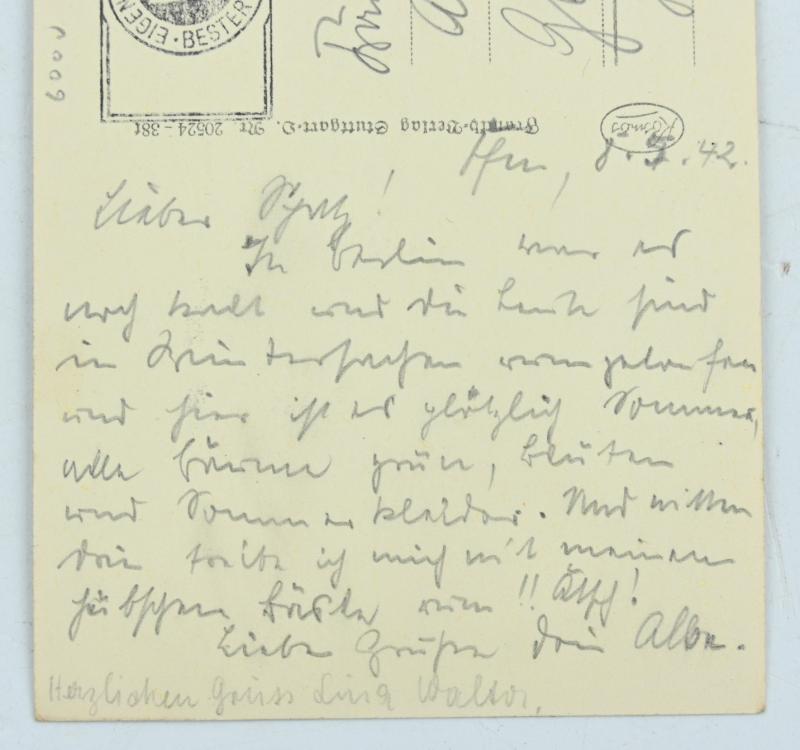 EIGEN · BESTER
6000
Franckh-Verlag Stuttgart-O. Nr. 20524-38t
Kosmos
8.5.42.
Lieber Schatz!
In Berlin war es
noch kalt und die Leute sind
in Wintersachen rumgelaufen
und hier ist es plötzlich Sommer,
alle Bäume grün, Blüten
und Sommerkleider. Und mitten
drin treibe ich mich mit meinem
hübschen rum!! Ätsch!
Liebe Grüße Dein
Herzlichen Gruss Walter.